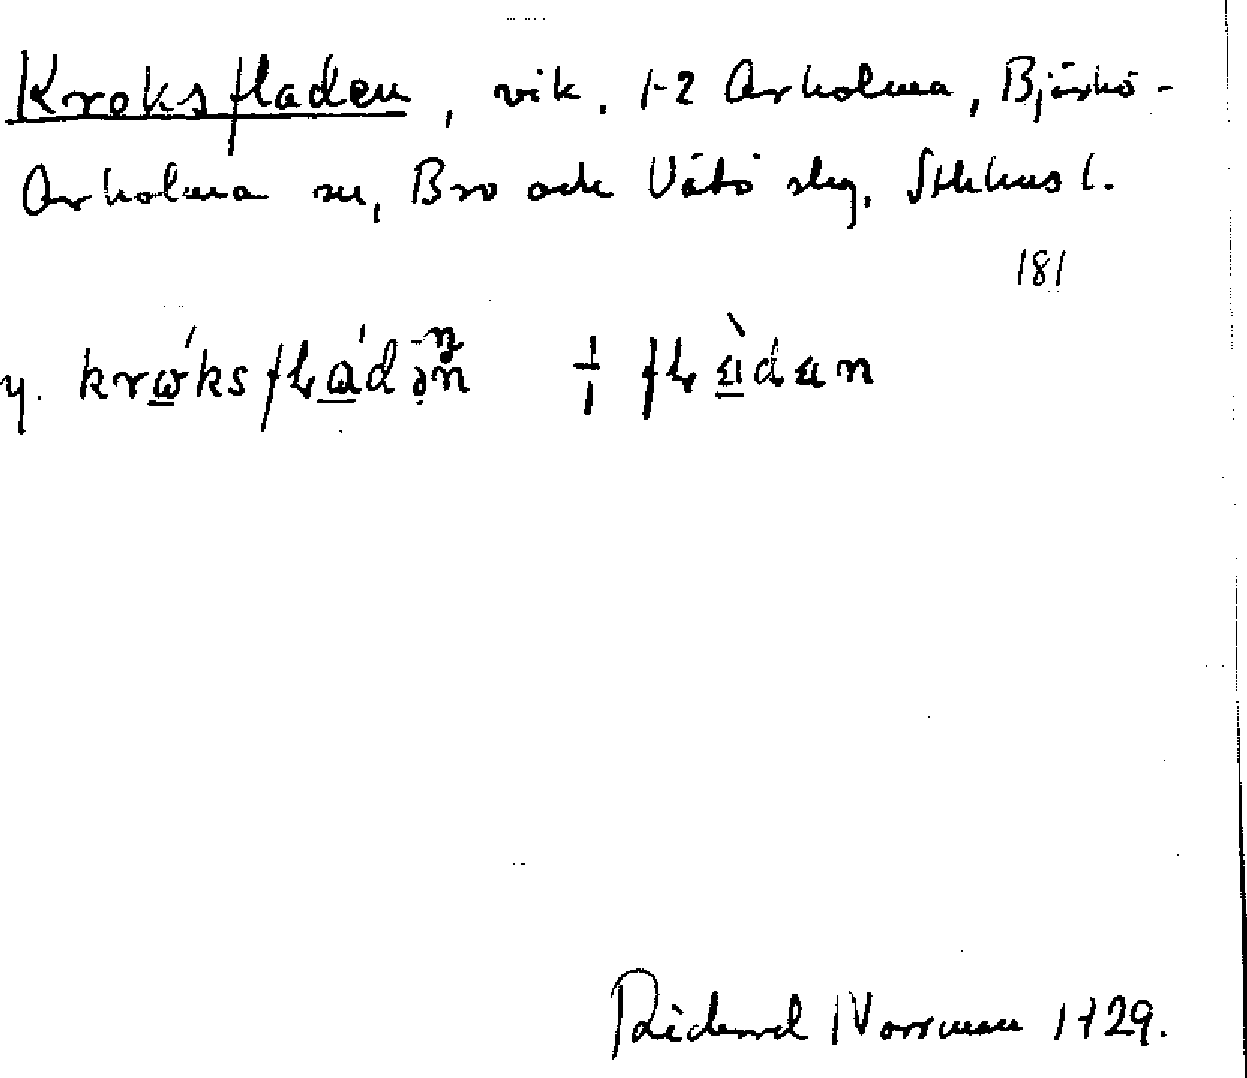 Kroksfladen, vik. 1-2 Arholma, Björkö-
Arholma sn, Bro och Vätö skg, Sthlms l.
181
y. krώksflád
Rickard Norrman 1929.